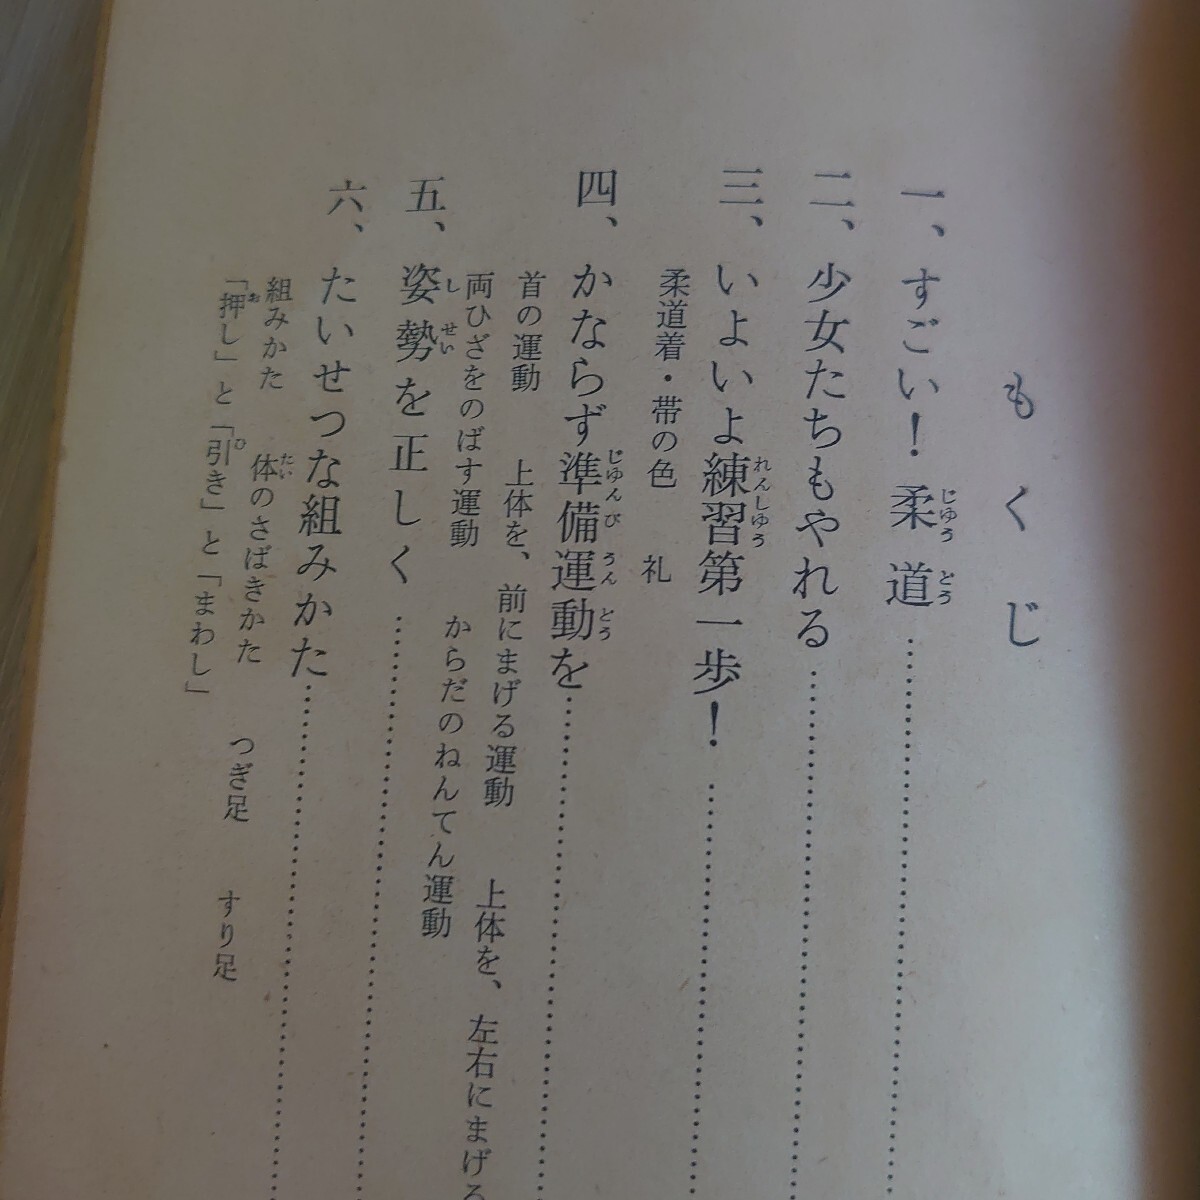 もくじ
一、すごい！柔道
二、少女たちもやれる
三、いよいよ練習第一歩！
柔道着・帯の色　礼
四、かならず準備運動を
首の運動　上体を、前にまげる運動　上体を、左右にまげる
両ひざをのばす運動　からだのねんてん運動
五、姿勢を正しく
六、たいせつな組みかた
組みかた　体のさばきかた　つぎ足　すり足
「押し」と「引き」と「まわし」